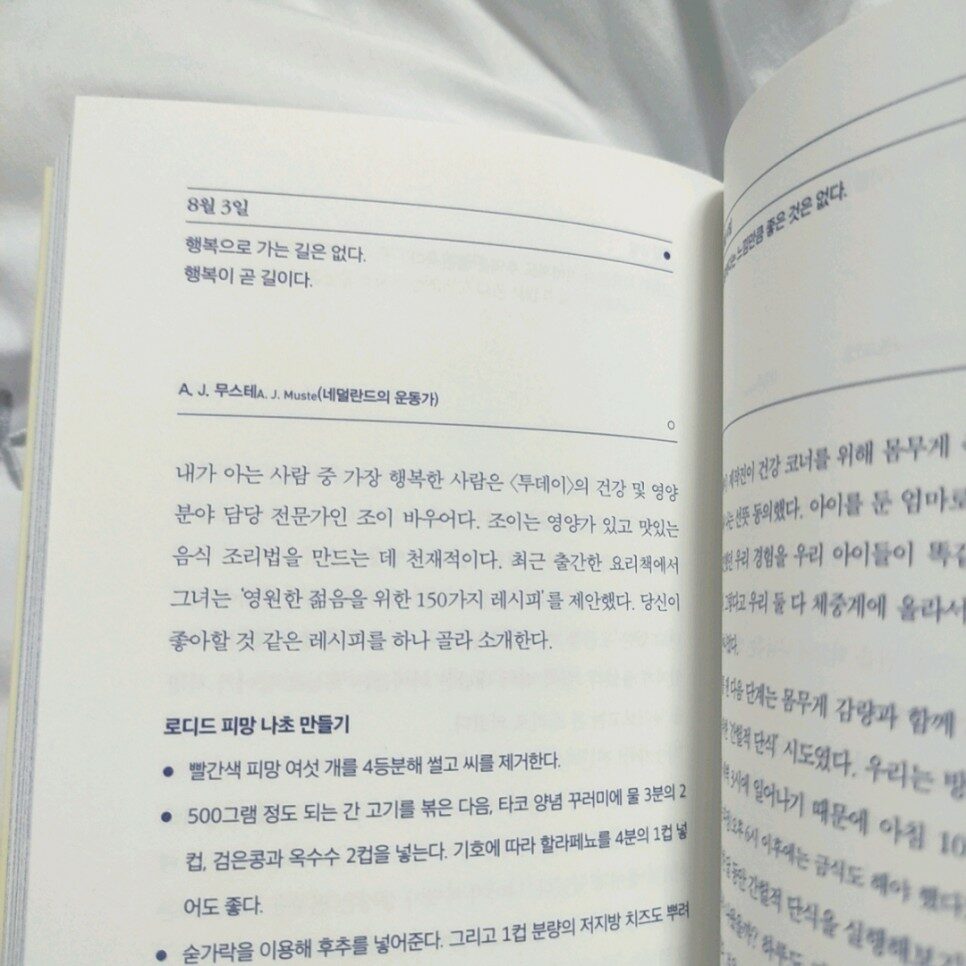 8월 3일
행복으로 가는 길은 없다.
행복이 곧 길이다.
A. J. 무스테A. J. Muste(네덜란드의 운동가)
내가 아는 사람 중 가장 행복한 사람은 〈투데이〉의 건강 및 영양
분야 담당 전문가인 조이 바우어다. 조이는 영양가 있고 맛있는
음식 조리법을 만드는 데 천재적이다. 최근 출간한 요리책에서
그녀는 '영원한 젊음을 위한 150가지 레시피'를 제안했다. 당신이
좋아할 것 같은 레시피를 하나 골라 소개한다.
로디드 피망 나초 만들기
● 빨간색 피망 여섯 개를 4등분해 썰고 씨를 제거한다.
● 500그램 정도 되는 간 고기를 볶은 다음, 타코 양념 꾸러미에 물 3분의 2
컵, 검은콩과 옥수수 2컵을 넣는다. 기호에 따라 할라페뇨를 4분의 1컵 넣
어도 좋다.
● 숟가락을 이용해 후추를 넣어준다. 그리고 1컵 분량의 저지방 치즈도 뿌려
느낌만큼 좋은 것은 없다.
제작진이 건강 코너를 위해 몸무게
선뜻 동의했다. 아이를 둔 엄마로
우리 경험을 우리 아이들이 똑같
우리 둘 다 체중계에 올라서
다음 단계는 몸무게 감량과 함께
간헐적 단식' 시도였다. 우리는
3시에 일어나기 때문에 아침 10
오후 6시 이후에는 금식도 해야 했다.
동안 간헐적 단식을 실행해보기
하루도